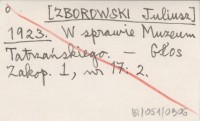 [ZBOROWSKI Juliusz]
1923. W sprawie Muzeum
Tatrzańskiego. — Głos
Zakop. 1, nr 17: 2.